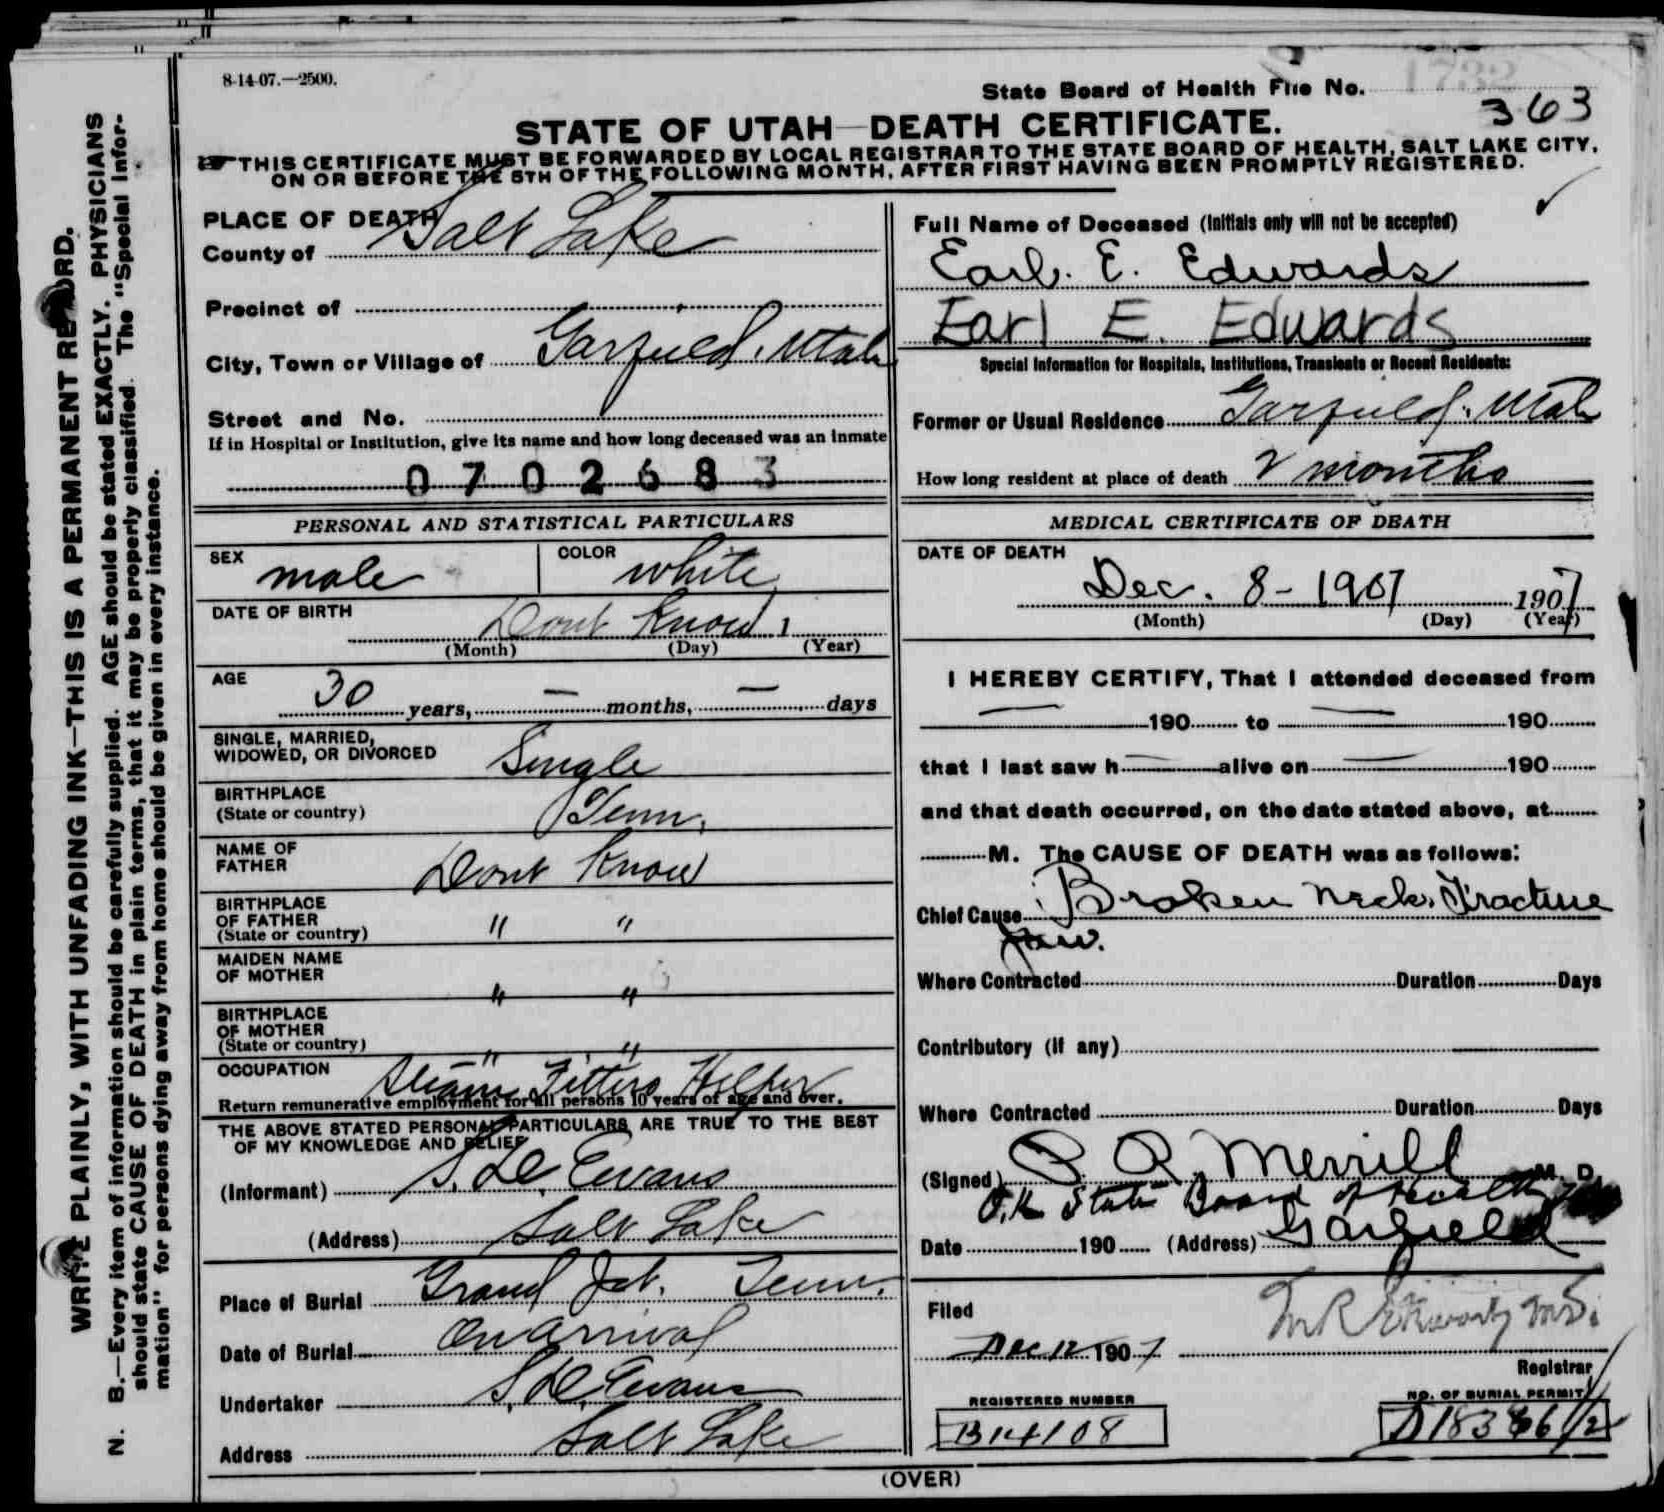 8-14-07.—2500.
State Board of Health File No. 1732
363
STATE OF UTAH—DEATH CERTIFICATE.
THIS CERTIFICATE MUST BE FORWARDED BY LOCAL REGISTRAR TO THE STATE BOARD OF HEALTH, SALT LAKE CITY,
ON OR BEFORE THE 5TH OF THE FOLLOWING MONTH, AFTER FIRST HAVING BEEN PROMPTLY REGISTERED.
WRITE PLAINLY, WITH UNFADING INK—THIS IS A PERMANENT RECORD.
N. B.—Every item of information should be carefully supplied. AGE should be stated EXACTLY. PHYSICIANS
should state CAUSE OF DEATH in plain terms, that it may be properly classified. The "Special Infor-
mation" for persons dying away from home should be given in every instance.
PLACE OF DEATH
County of Salt Lake
Precinct of
City, Town or Village of Garfield, Utah
Street and No.
If in Hospital or Institution, give its name and how long deceased was an inmate
0702683
PERSONAL AND STATISTICAL PARTICULARS
SEX male COLOR white
DATE OF BIRTH Dont Know 1
(Month) (Day) (Year)
AGE 30 years, — months, — days
SINGLE, MARRIED,
WIDOWED, OR DIVORCED Single
BIRTHPLACE
(State or country) Tenn.
NAME OF
FATHER Dont Know
BIRTHPLACE
OF FATHER
(State or country) " "
MAIDEN NAME
OF MOTHER " "
BIRTHPLACE
OF MOTHER
(State or country) " "
OCCUPATION Steam Fitters Helper
Return remunerative employment for all persons 10 years of age and over.
THE ABOVE STATED PERSONAL PARTICULARS ARE TRUE TO THE BEST
OF MY KNOWLEDGE AND BELIEF
(Informant) S. D. Evans
(Address) Salt Lake
Place of Burial Grand Jct. Tenn.
Date of Burial On Arrival
Undertaker S. D. Evans
Address Salt Lake
Full Name of Deceased (Initials only will not be accepted)
Earl. E. Edwards
Earl E. Edwards
Special Information for Hospitals, Institutions, Transients or Recent Residents:
Former or Usual Residence Garfield, Utah
How long resident at place of death 2 months
MEDICAL CERTIFICATE OF DEATH
DATE OF DEATH
Dec. 8-1907 1907
(Month) (Day) (Year)
I HEREBY CERTIFY, That I attended deceased from
— 190 to — 190
that I last saw h — alive on — 190
and that death occurred, on the date stated above, at
M. The CAUSE OF DEATH was as follows:
Chief Cause Broken neck. Fracture
Jaw.
Where Contracted Duration Days
Contributory (if any)
Where Contracted Duration Days
(Signed) P. R. Merrill M. D.
O.K. State Board of Health
Date 190 (Address) Garfield
Filed
Dec 12 1907
Registrar
REGISTERED NUMBER NO. OF BURIAL PERMIT
B14108
(OVER)